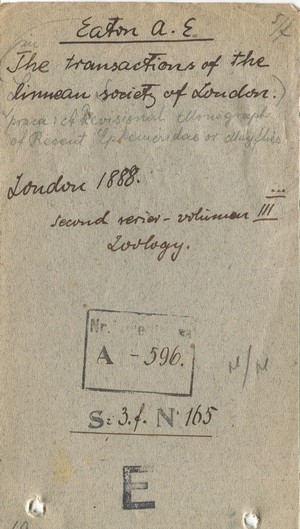 Eaton A. E.
(in
The transactions of the
linnean society of London.)
praca: A Revisional Monograph
of Recent Ephemeridae or Mayflies
London 1888.
second series - volumen III
Zoology.
Nr.
A - 596.
N/N
S: 3.f. N 165
E